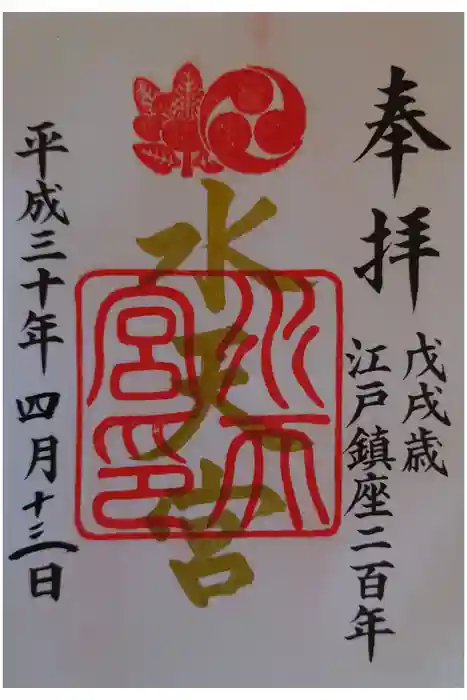 奉拝
戊戌歳
江戸鎮座二百年
水天宮
水天宮印
平成三十年四月十三日